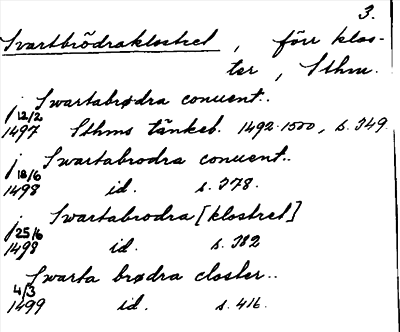 3.
Svartbrödraklostret, förr klos-
ter, Sthm.
j Swartabrødra conuent..
12/2
1497 Sthms tänkeb. 1492-1500, s. 349.
j Swartabrodra conuent..
18/6
1498 id. s. 378.
j Swartabrodra [klostret]
25/6
1498 id. s. 382
Swarta brødra closter..
4/3
1499 id. s. 416.